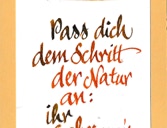 Pass dich
dem Schritt
der Natur
an:
ihr